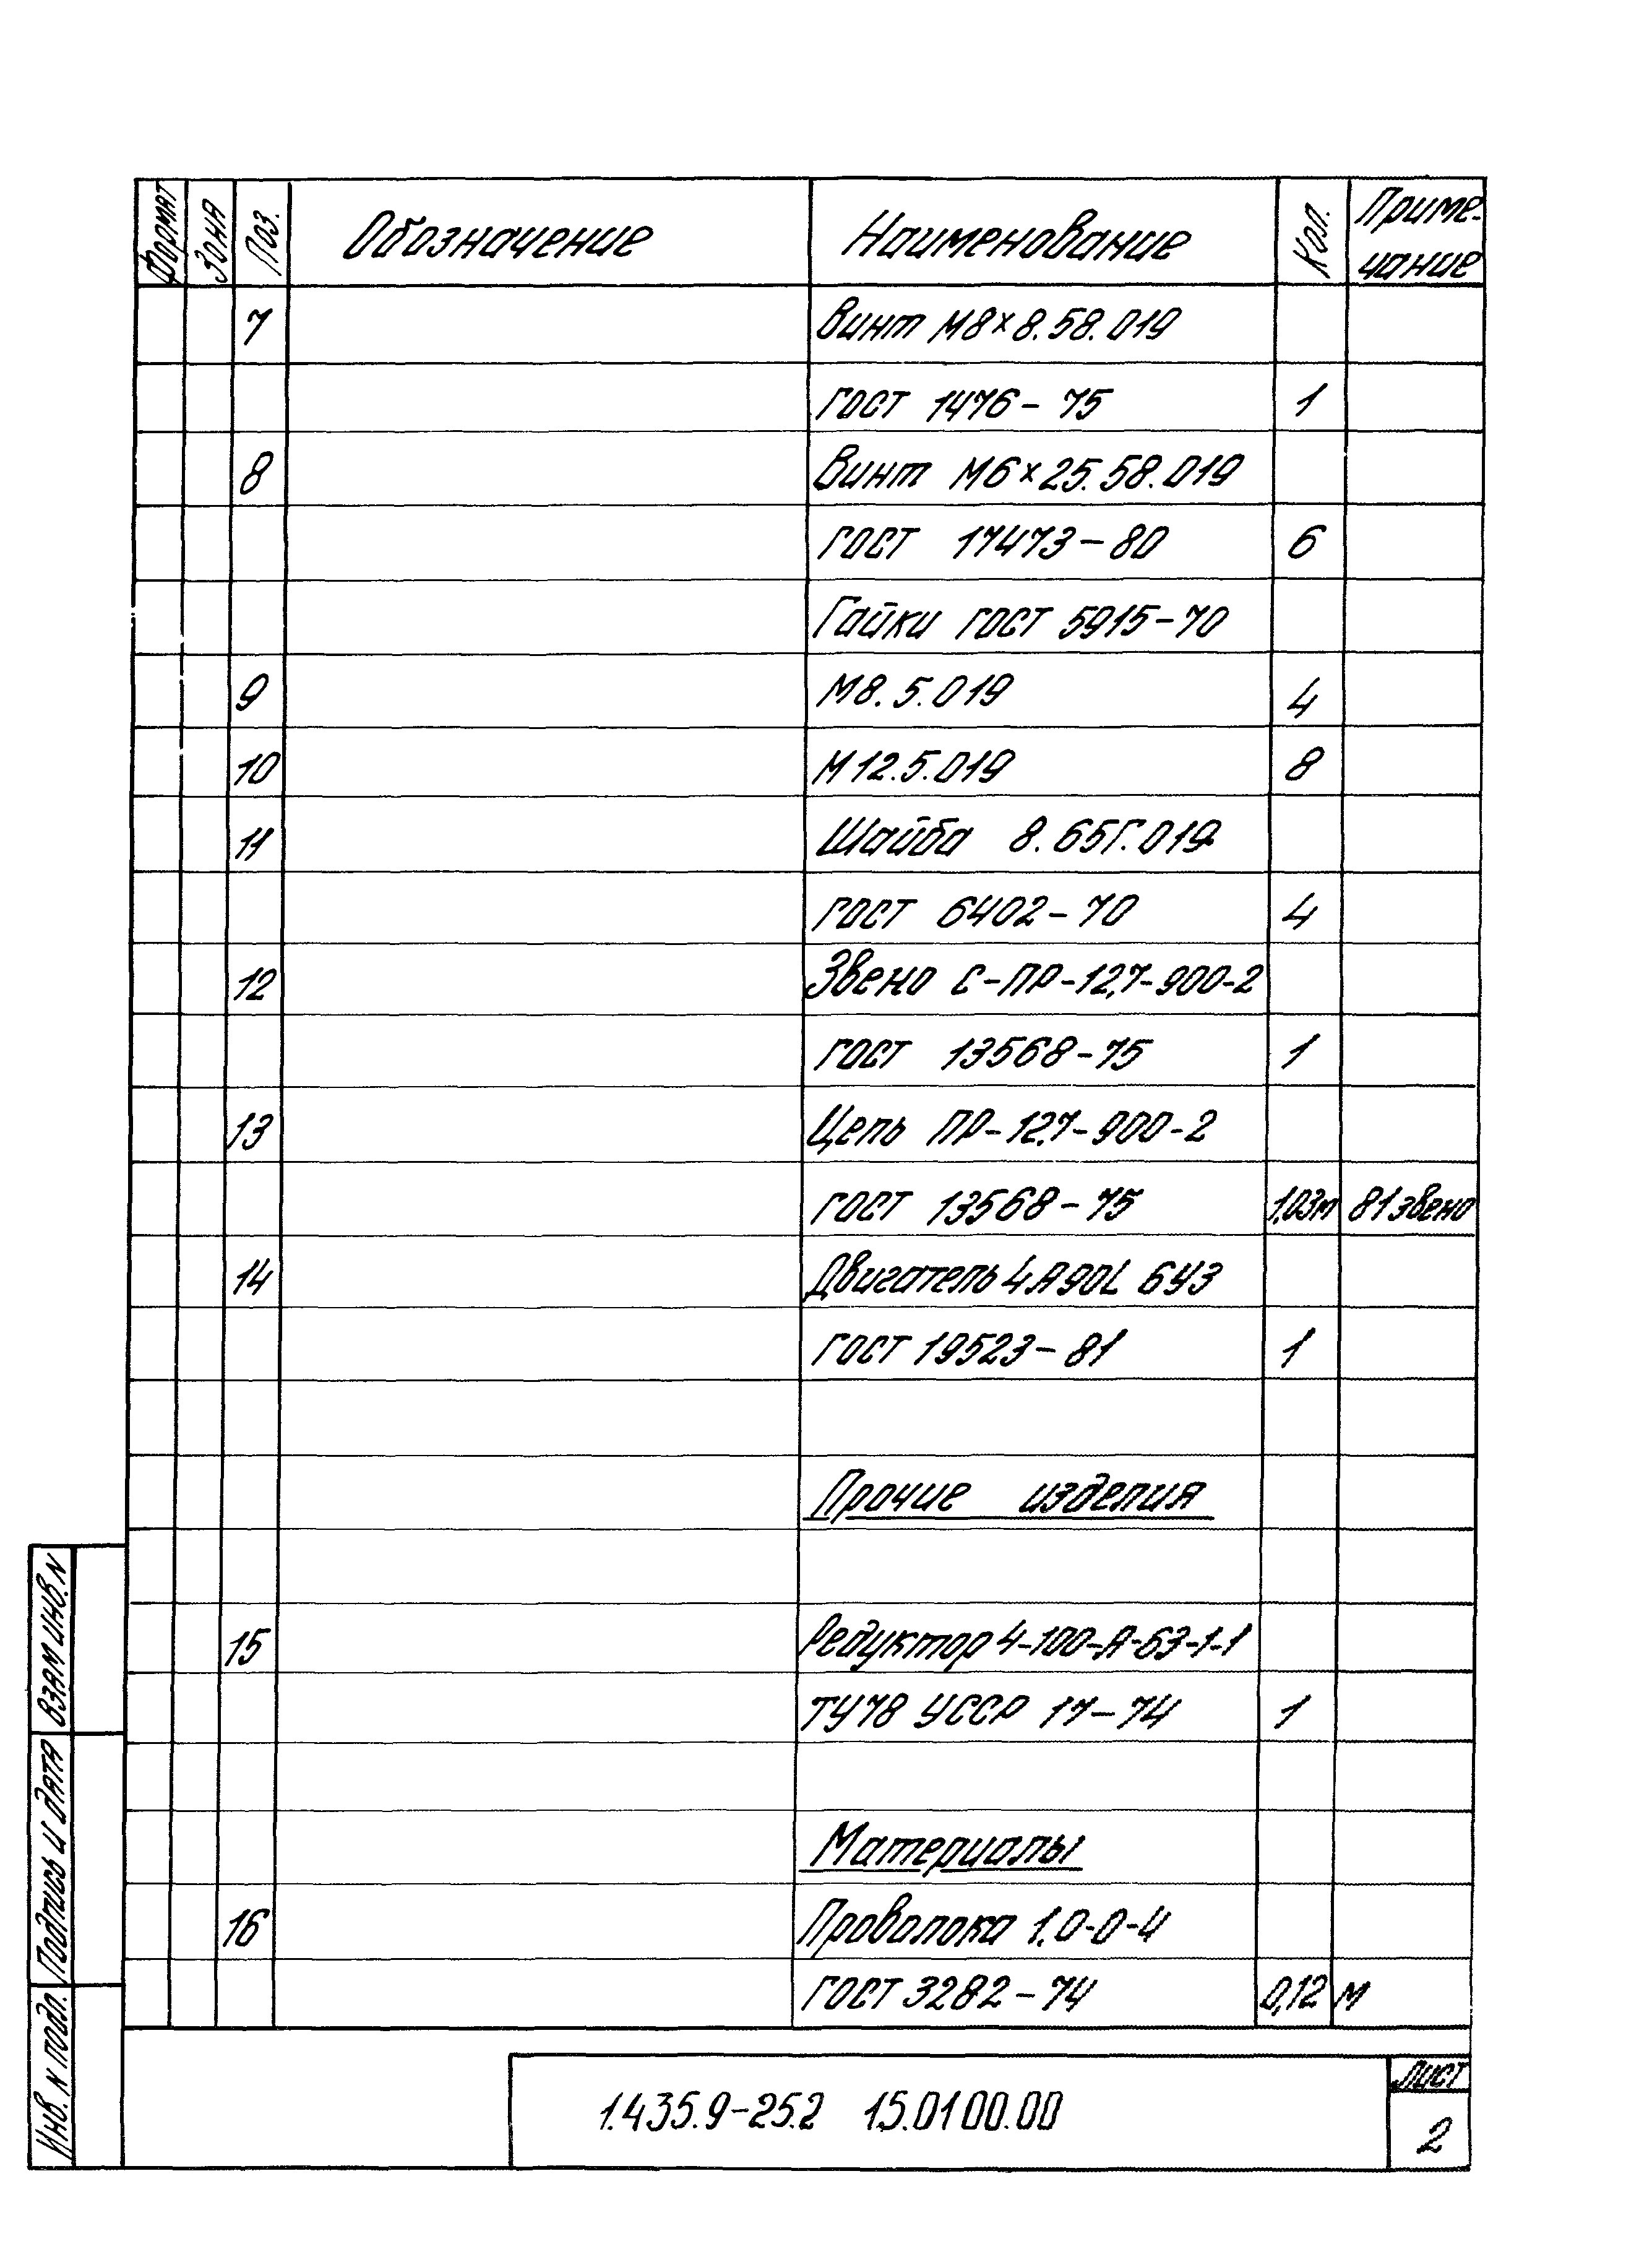 Формат Зона Поз. Обозначение Наименование Кол. Приме-
чание
7 Винт М8×8.58.019
ГОСТ 1476-75 1
8 Винт М6×25.58.019
ГОСТ 17473-80 6
Гайки ГОСТ 5915-70
9 М8.5.019 4
10 М12.5.019 8
11 Шайба 8.65Г.019
ГОСТ 6402-70 4
12 Звено С-ПР-12,7-900-2
ГОСТ 13568-75 1
13 Цепь ПР-12,7-900-2
ГОСТ 13568-75 1,03м 81 звено
14 Двигатель 4А90L 6У3
ГОСТ 19523-81 1
Прочие изделия
15 Редуктор 4-100-А-63-1-1
ТУ78 УССР 17-74 1
Материалы
16 Проволока 1.0-0-Ч
ГОСТ 3282-74 0,12 м
Взам инв. N
Подпись и дата
Инв. N подл.
1.435.9-25.2 15.0100.00
Лист
2